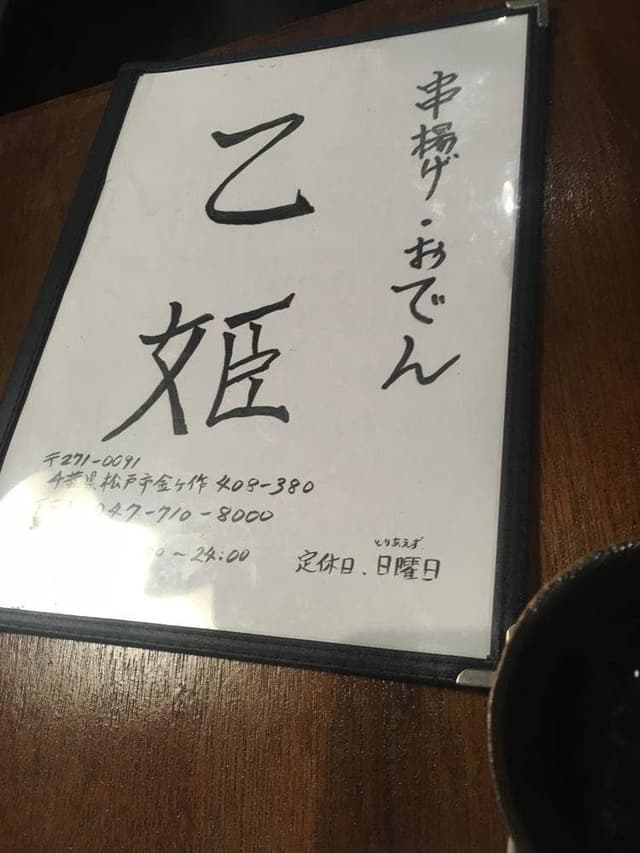 串揚げ・おでん
乙姫
〒271-0091
千葉県松戸市金ヶ作408-380
047-710-8000
～24:00
とりあえず
定休日、日曜日